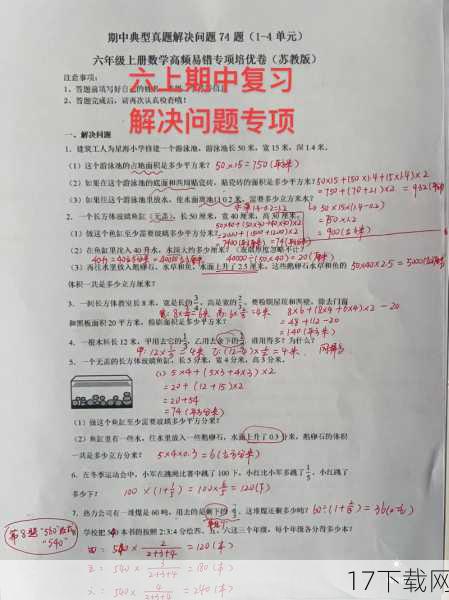 期中典型真题解决问题 74 题（1-4 单元）
六年级上册数学高频易错专项培优卷（苏教版）
六上期中复习
解决问题专项
注意事项：
1、答题前填写好自己的姓名
2、答题完成后，请再次认真检查哦！
一、解决问题
1．建筑工人为星海小学修建一个游泳池，游泳池长 50 米，宽 15 米，深 1.4 米。
（1）这个游泳池的占地面积是多少平方米？ 50×15=750（平方米）
（2）如果在这个游泳池的底面和四周贴瓷砖，贴瓷砖的面积是多少平方米？ 50×15+(50×1.4+15×1.4)×2
=750+(70+21)×2 = 932（平方米）
（3）如果往这个游泳池里放水，使水面离池口 0.2 米，需要多少立方米水？
50×15×(1.4-0.2)
=750×1.2
=900（立方米）
2．一个长方体玻璃鱼缸（无盖），长 50 厘米，宽 40 厘米，高 30 厘米。
50×40+(50×30+40×30)×2
（1）做这个鱼缸至少需要玻璃多少平方厘米？ =2000+(1500+1200)×2
（2）在鱼缸里注入 40 升水，水深大约多少厘米？（玻璃厚度忽略不计）
40升=40立方分米=40000立方厘米 40000÷(50×40)=20（厘米）
（3）再往水里放入鹅卵石、水草和鱼，水面上升了 2.5 厘米。这些鹅卵石水草和鱼的 50×40×2.5=5000（立方厘米）
体积一共是多少立方厘米？
3．一间长方体教室长 8 米，宽是长的3/4，高是宽的2/3。要粉刷屋顶和四壁，除去门窗
宽：8×3/4=6米 高：6×2/3=4米 8×6+(8×4+6×4)×2-20
和黑板面积 20 平方米，粉刷面积是多少平方米？ =48+112-20
=140（平方米）
4．一根木料长 12 米，甲用去它的1/3，乙用去余下的1/2，谁用得多？为什么？
甲：12×1/3=4米 乙：(12-4)×1/2=4米 同样多
5．一个无盖的长方体玻璃鱼缸，长 5 分米，宽 4 分米，高 3 分米。
(1) 5×4+(5×3+4×3)×2
=20+(12+15)×2
=20+54
=74（平方分米）
（1）做这个鱼缸至少需要玻璃多少平方分米？
（2）鱼缸里有一些水，往水里放入一些鹅卵石，水面上升了 0.3 分米，鹅卵石的体积
一共是多少立方分米？ 5×4×0.3=6（立方分米）
6．在冬季运动会中，小军在跳绳比赛中跳了 100 下，小红比小军多跳了1/5，小红跳了
多少下？ 100×(1+1/5)=100×6/5=120（下）
第8题"560"改为"540"
学校把 540 本书的按照 2:3:4 分给四、五、六这三个年级，每个年级各分得多少本？
四：540×2/2+3+4=120（本）
五：540×3/2+3+4=180（本）
六：540×4/2+3+4=240（本）
17下载网